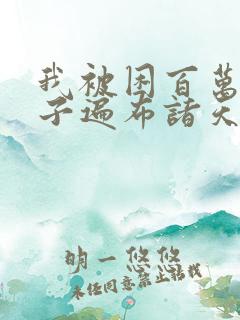 我被困百萬
子遍布諸天
明一悠悠
未经同意禁止转载